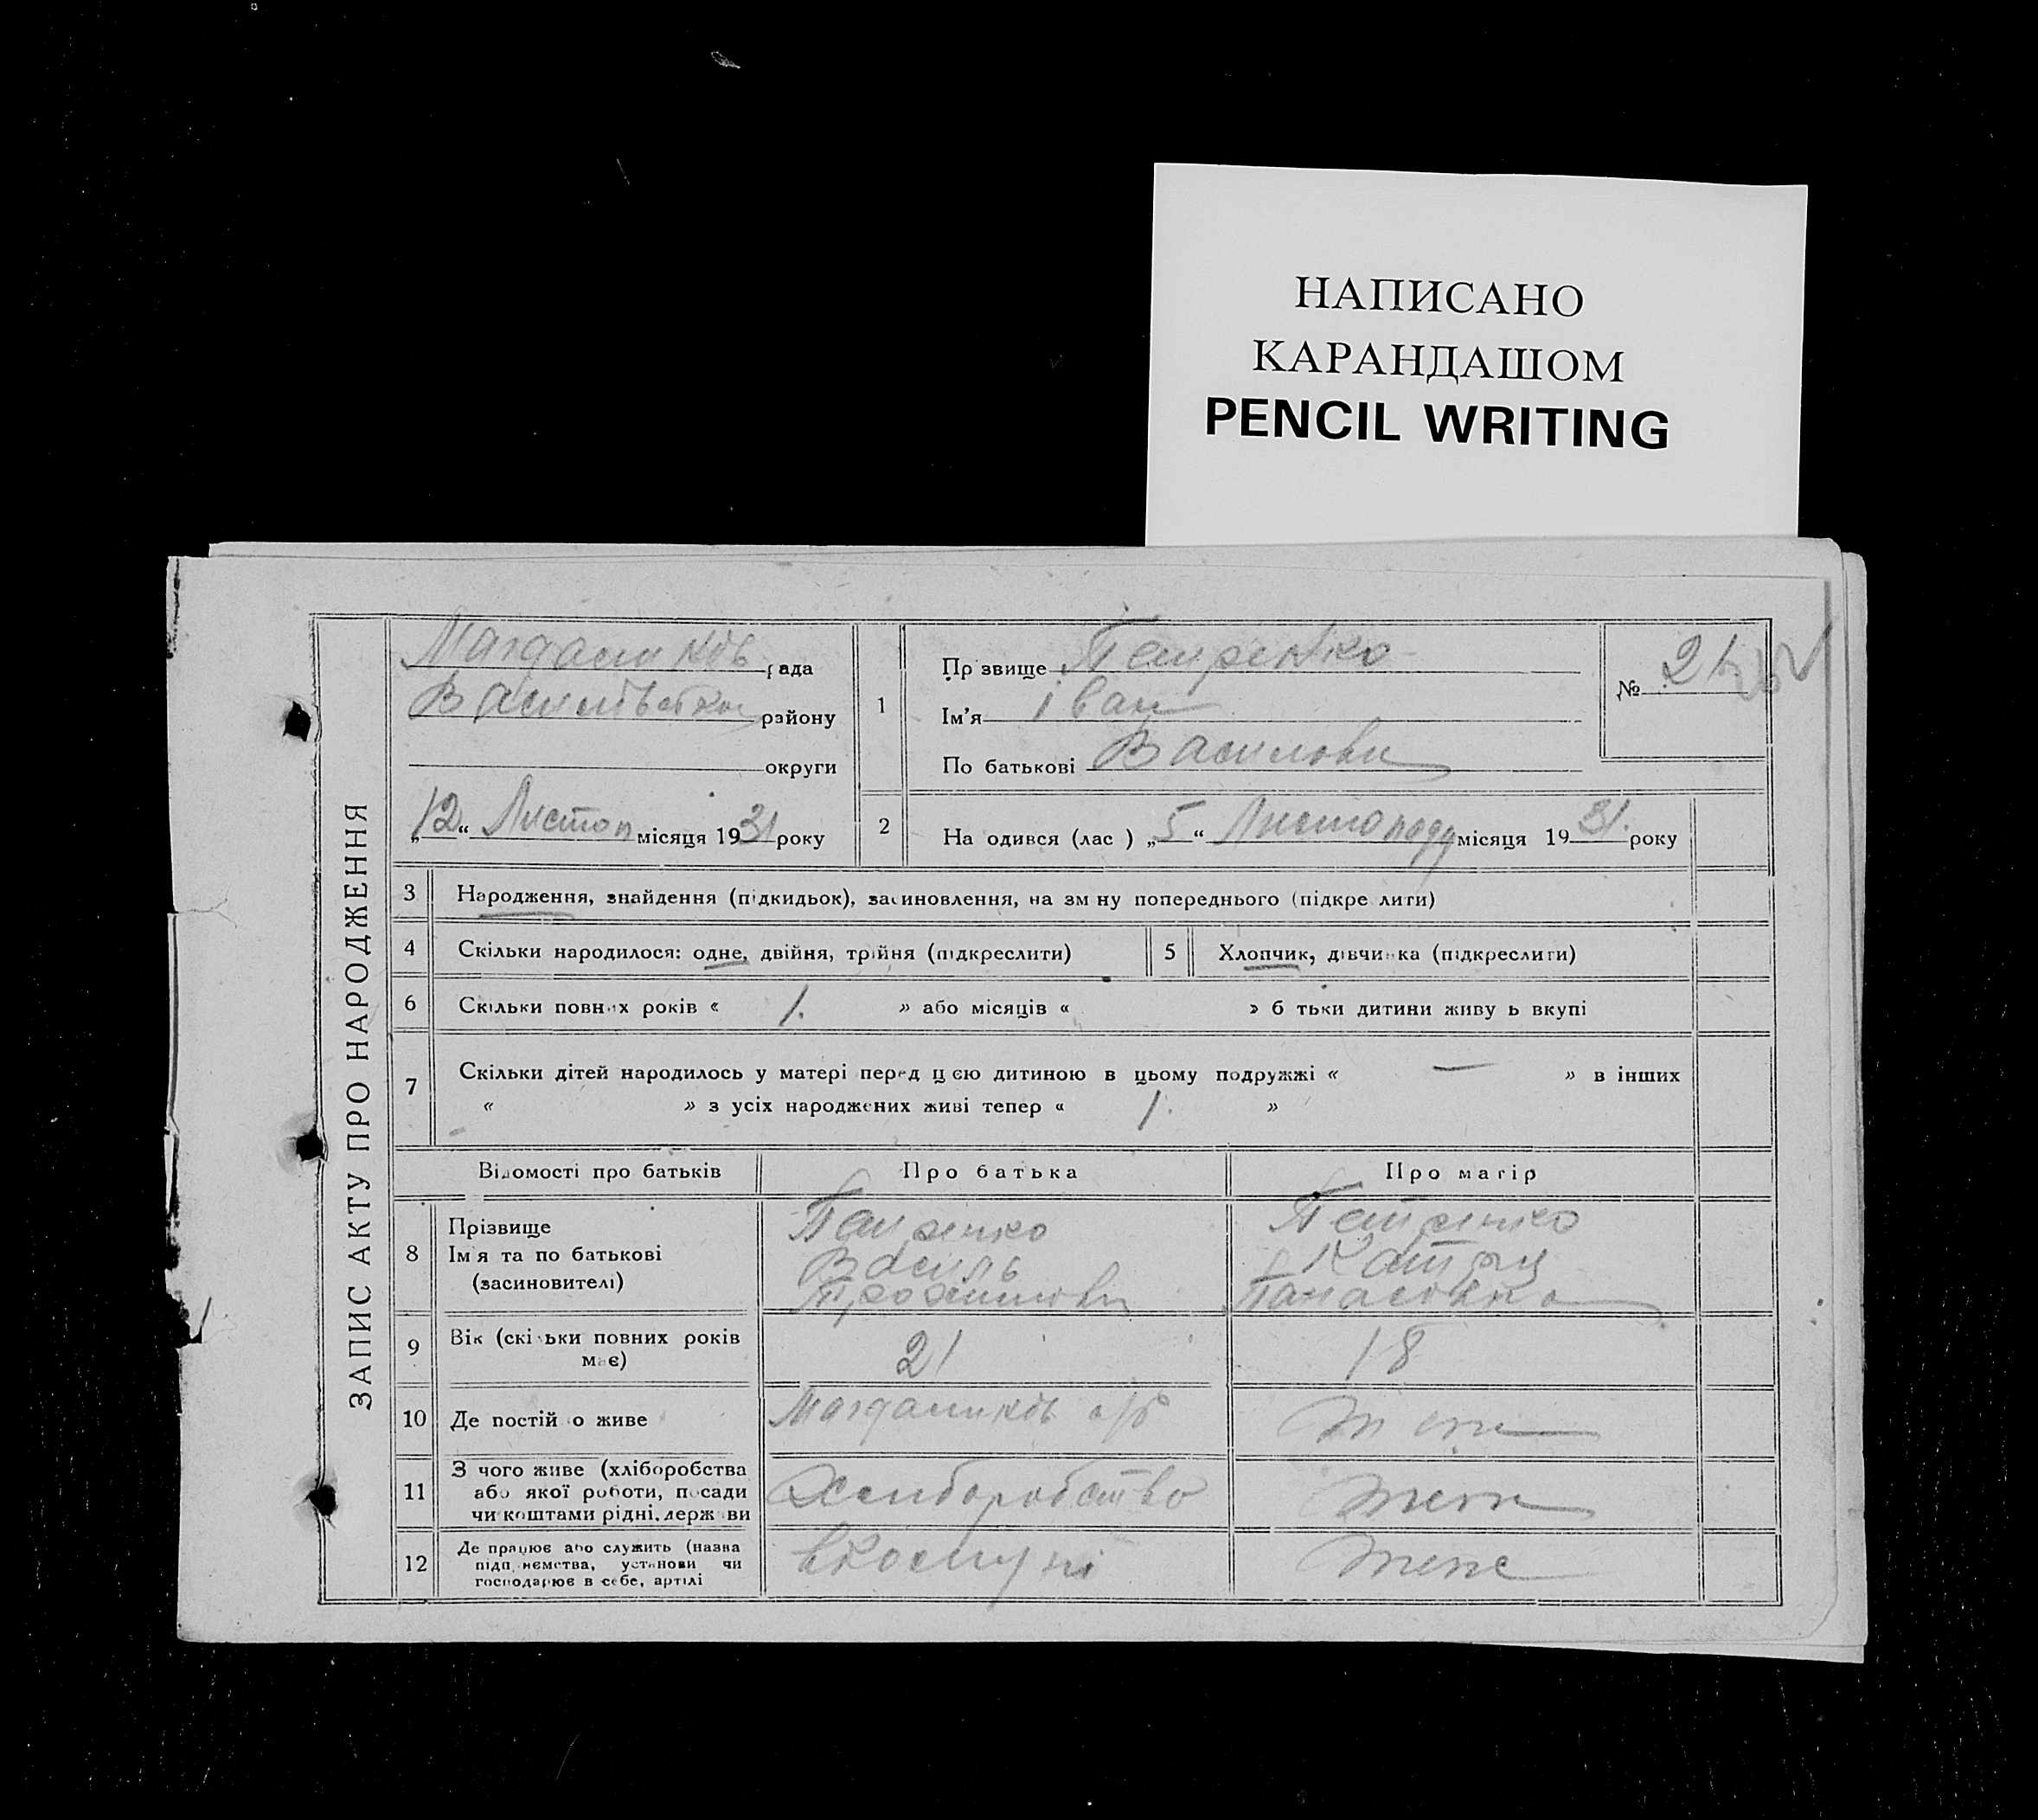 НАПИСАНО
КАРАНДАШОМ
PENCIL WRITING
ЗАПИС АКТУ ПРО НАРОДЖЕННЯ
рада
району
округи
„12“ Листоп місяця 1931 року
1
Прзвище Петренко
Ім'я Іван
По батькові Василови
№ 21
2
На одився (лас ) „5“ Листопаду місяця 1931. року
3 Народження, знайдення (підкидьок), засиновлення, на зм ну попереднього (підкре лити)
4 Скільки народилося: одне, двійня, трійня (підкреслити)
5 Хлопчик, дівчинка (підкреслити)
6 Скільки повних років « 1. » або місяців « » б тьки дитини живу ь вкупі
7 Скільки дітей народилось у матері перед цією дитиною в цьому подружжі « — » в інших
« » з усіх народжених живі тепер « 1. »
Відомості про батьків Про батька Про матір
8 Прізвище
Ім'я та по батькові
(засиновителі)
Петренко
Василь
Петренко
Катря
Панасівна
9 Вік (скільки повних років
має)
21 18
10 Де постій о живе
теж
11 З чого живе (хліборобства
або якої роботи, посади
чи коштами рідні, держ ви
Хлиборобство теж
12 Де працює або служить (назва
підп иємства, установи чи
господарює в себе, артілі
теж